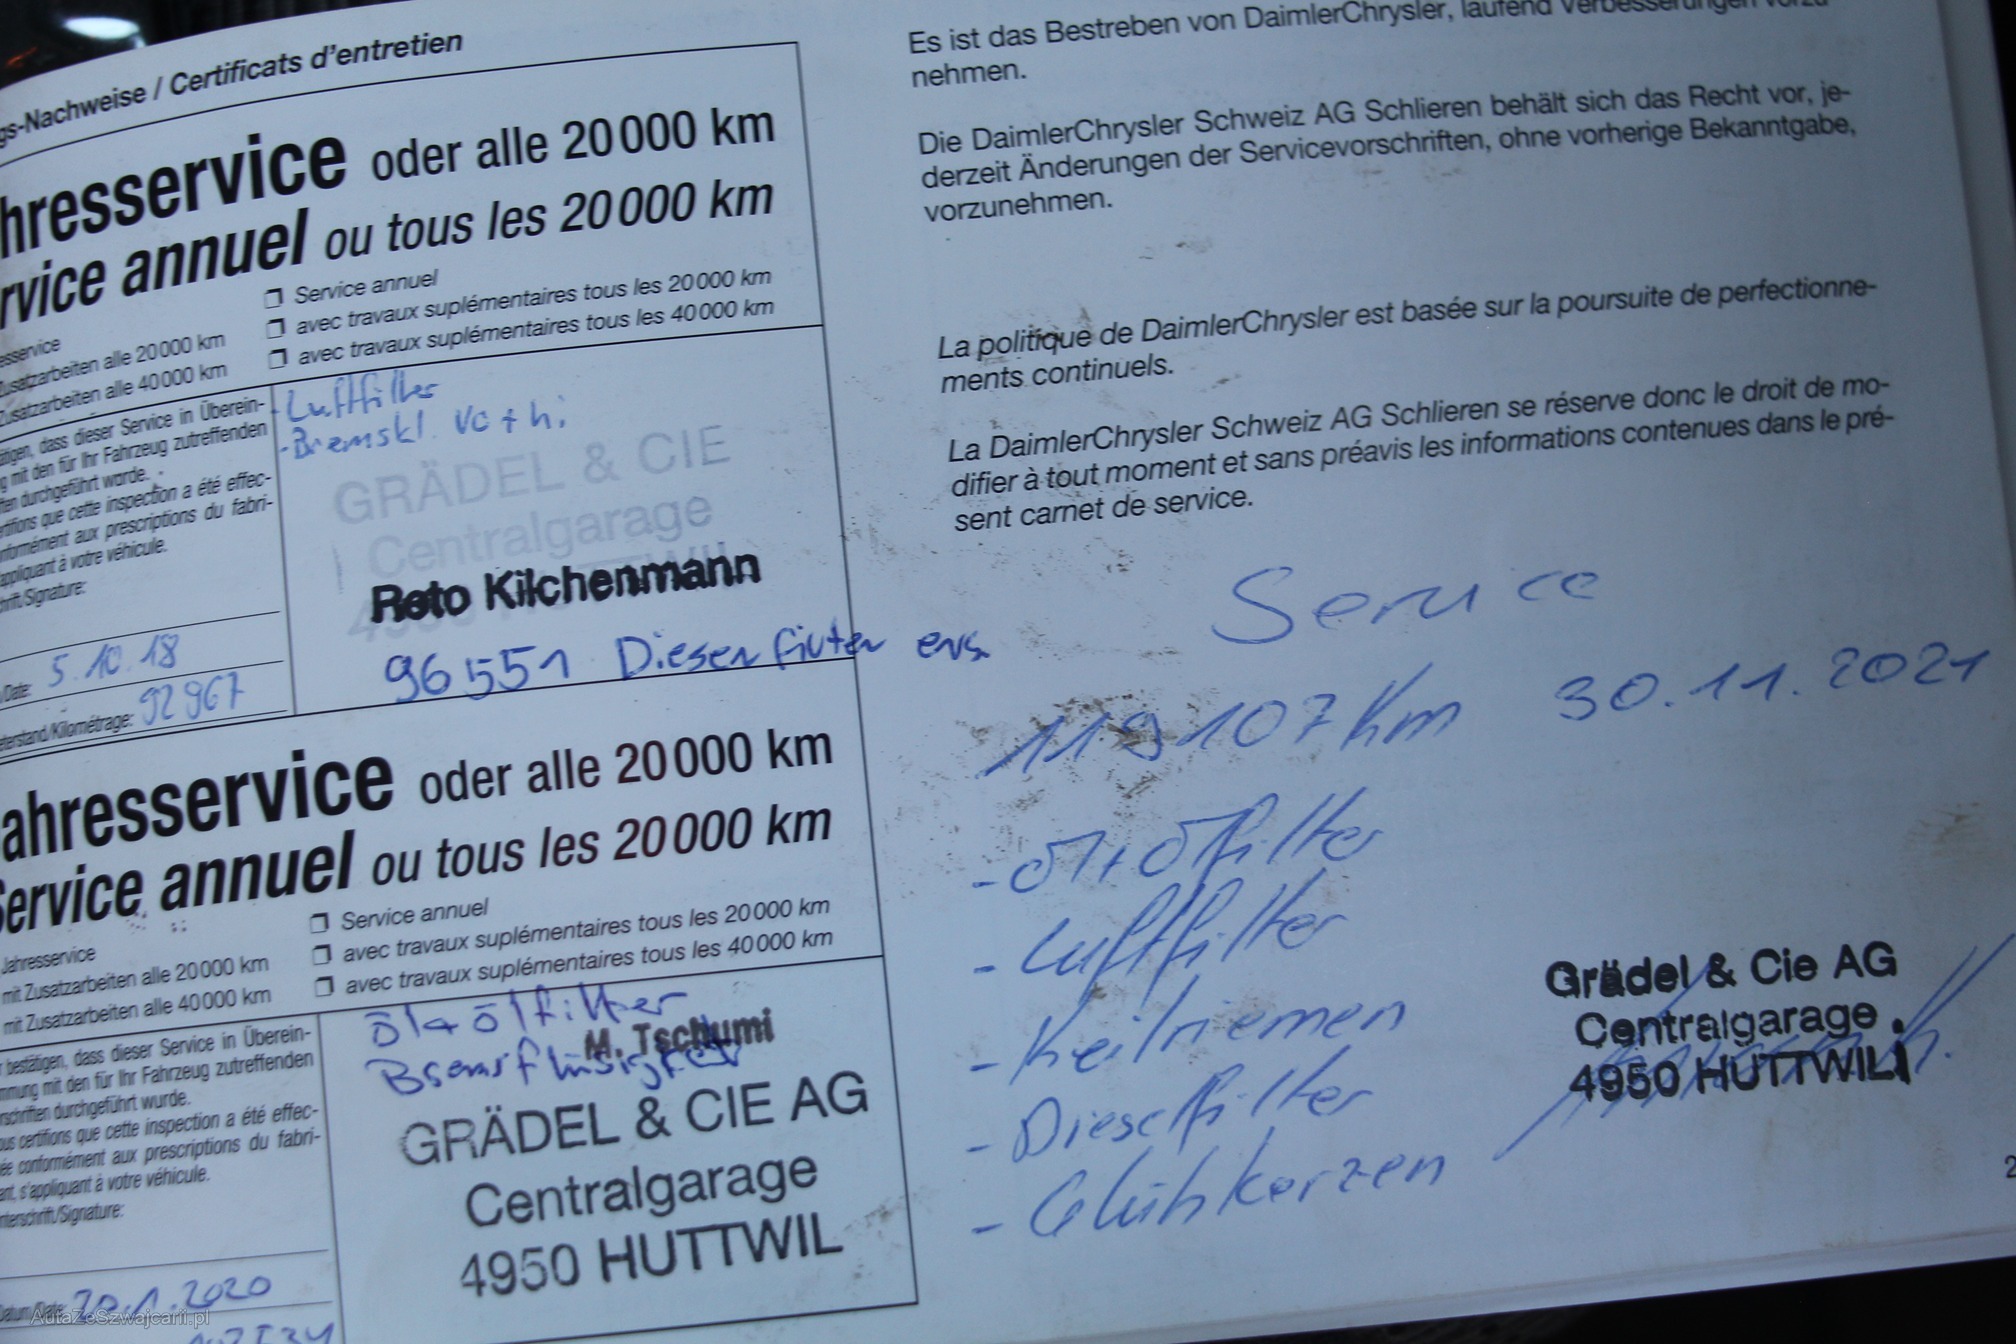 gs-Nachweise / Certificats d'entretien
hresservice oder alle 20 000 km
rvice annuel ou tous les 20 000 km
esservice
❐ Service annuel
Zusatzarbeiten alle 20 000 km
❐ avec travaux suplémentaires tous les 20 000 km
Zusatzarbeiten alle 40 000 km
❐ avec travaux suplémentaires tous les 40 000 km
tigen, dass dieser Service in Überein-
g mit den für Ihr Fahrzeug zutreffenden
ften durchgeführt wurde.
rtifions que cette inspection a été effec-
nformément aux prescriptions du fabri-
appliquant à votre véhicule.
hrift/Signature:
- Luftfilter
- Bremskl. Vo + hi
GRÄDEL & CIE
Centralgarage
Reto Kilchenmann
96551 Dieselfilter ers.
Date: 5.10.18
eterstand/Kilométrage: 92967
ahresservice oder alle 20 000 km
Service annuel ou tous les 20 000 km
Jahresservice
❐ Service annuel
mit Zusatzarbeiten alle 20 000 km
❐ avec travaux suplémentaires tous les 20 000 km
mit Zusatzarbeiten alle 40 000 km
❐ avec travaux suplémentaires tous les 40 000 km
bestätigen, dass dieser Service in Überein-
mmung mit den für Ihr Fahrzeug zutreffenden
rschriften durchgeführt wurde.
ous certifions que cette inspection a été effec-
ée conformément aux prescriptions du fabri-
ant, s'appliquant à votre véhicule.
nterschrift/Signature:
Öl + Ölfilter
M. Tschumi
Bremsflüssigkeit
GRÄDEL & CIE AG
Centralgarage
4950 HUTTWIL
Datum/Date: 20.1.2020
AutaZeSzwajcarii.pl
Es ist das Bestreben von DaimlerChrysler, laufend Verbesserungen vorzu
nehmen.
Die DaimlerChrysler Schweiz AG Schlieren behält sich das Recht vor, je-
derzeit Änderungen der Servicevorschriften, ohne vorherige Bekanntgabe,
vorzunehmen.
La politique de DaimlerChrysler est basée sur la poursuite de perfectionne-
ments continuels.
La DaimlerChrysler Schweiz AG Schlieren se réserve donc le droit de mo-
difier à tout moment et sans préavis les informations contenues dans le pré-
sent carnet de service.
Service
119107 Km 30.11.2021
- Öl + Ölfilter
- Luftfilter
- Keilriemen
- Dieselfilter
- Glühkerzen
Grädel & Cie AG
Centralgarage
4950 HUTTWIL
2